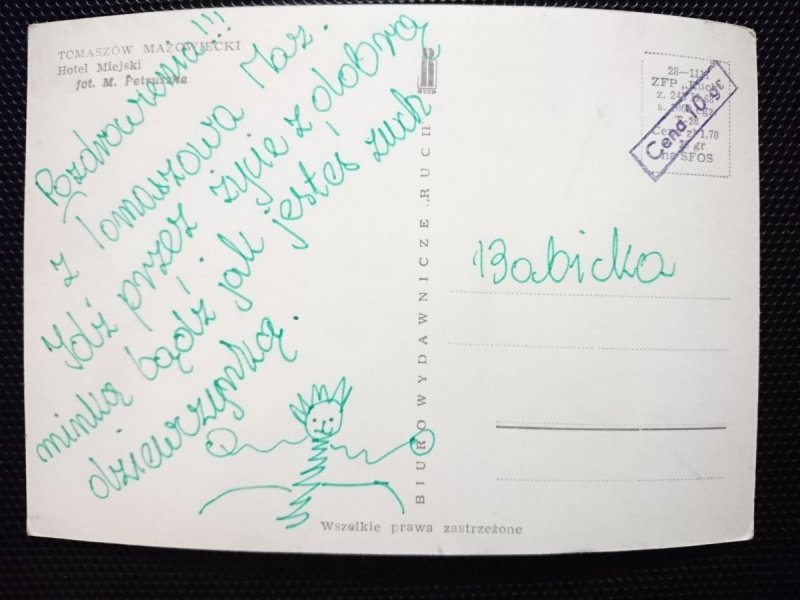 TOMASZÓW MAZOWIECKI
Hotel Miejski
fot. M. Petruszka
Pozdrowienia!!!
z Tomaszowa Maz.
Idź przez życie z dobrą
minką bądź jak jesteś zuch
dziewczynką.
RUCH
BIURO WYDAWNICZE „RUCH"
28—111
ZFP „Ruch"
T-28
Cena zł 1,70
gr
na SFOS
Cena 10 gr
Babicka
Wszelkie prawa zastrzeżone